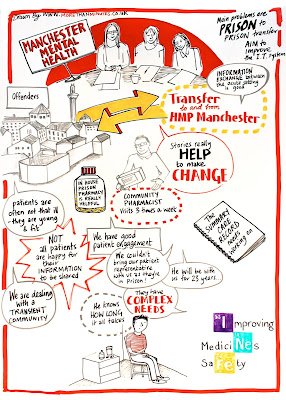 Drawn By: WWW.MORETHANMINUTES.CO.UK
MANCHESTER
MENTAL
HEALTH
Main problems are
PRISON to
PRISON transfer
AIM to
improve
the I.T. system
INFORMATION
EXCHANGE between
the acute setting
is good
Offenders
Transfer
to and from
HMP Manchester
Stories really
HELP
to make
CHANGE
IN HOUSE
PRISON
PHARMACY
IS REALLY
HELPFUL
COMMUNITY
PHARMACIST
visits 3 times a week
patients are
often not that ill
they are young
& fit
The
SUMMARY
CARE
RECORD
needs
NOT
all patients
are happy for
their
INFORMATION
to be shared
We have good
patient engagement
We couldn't
bring our patient
representative
with us as they're
in Prison!
He will be with
us for 23 years.
We are dealing
with a
TRANSIENT
COMMUNITY
They have
COMPLEX
NEEDS
He knows
HOW LONG
it all takes
Improving
MediciNes
SaFety